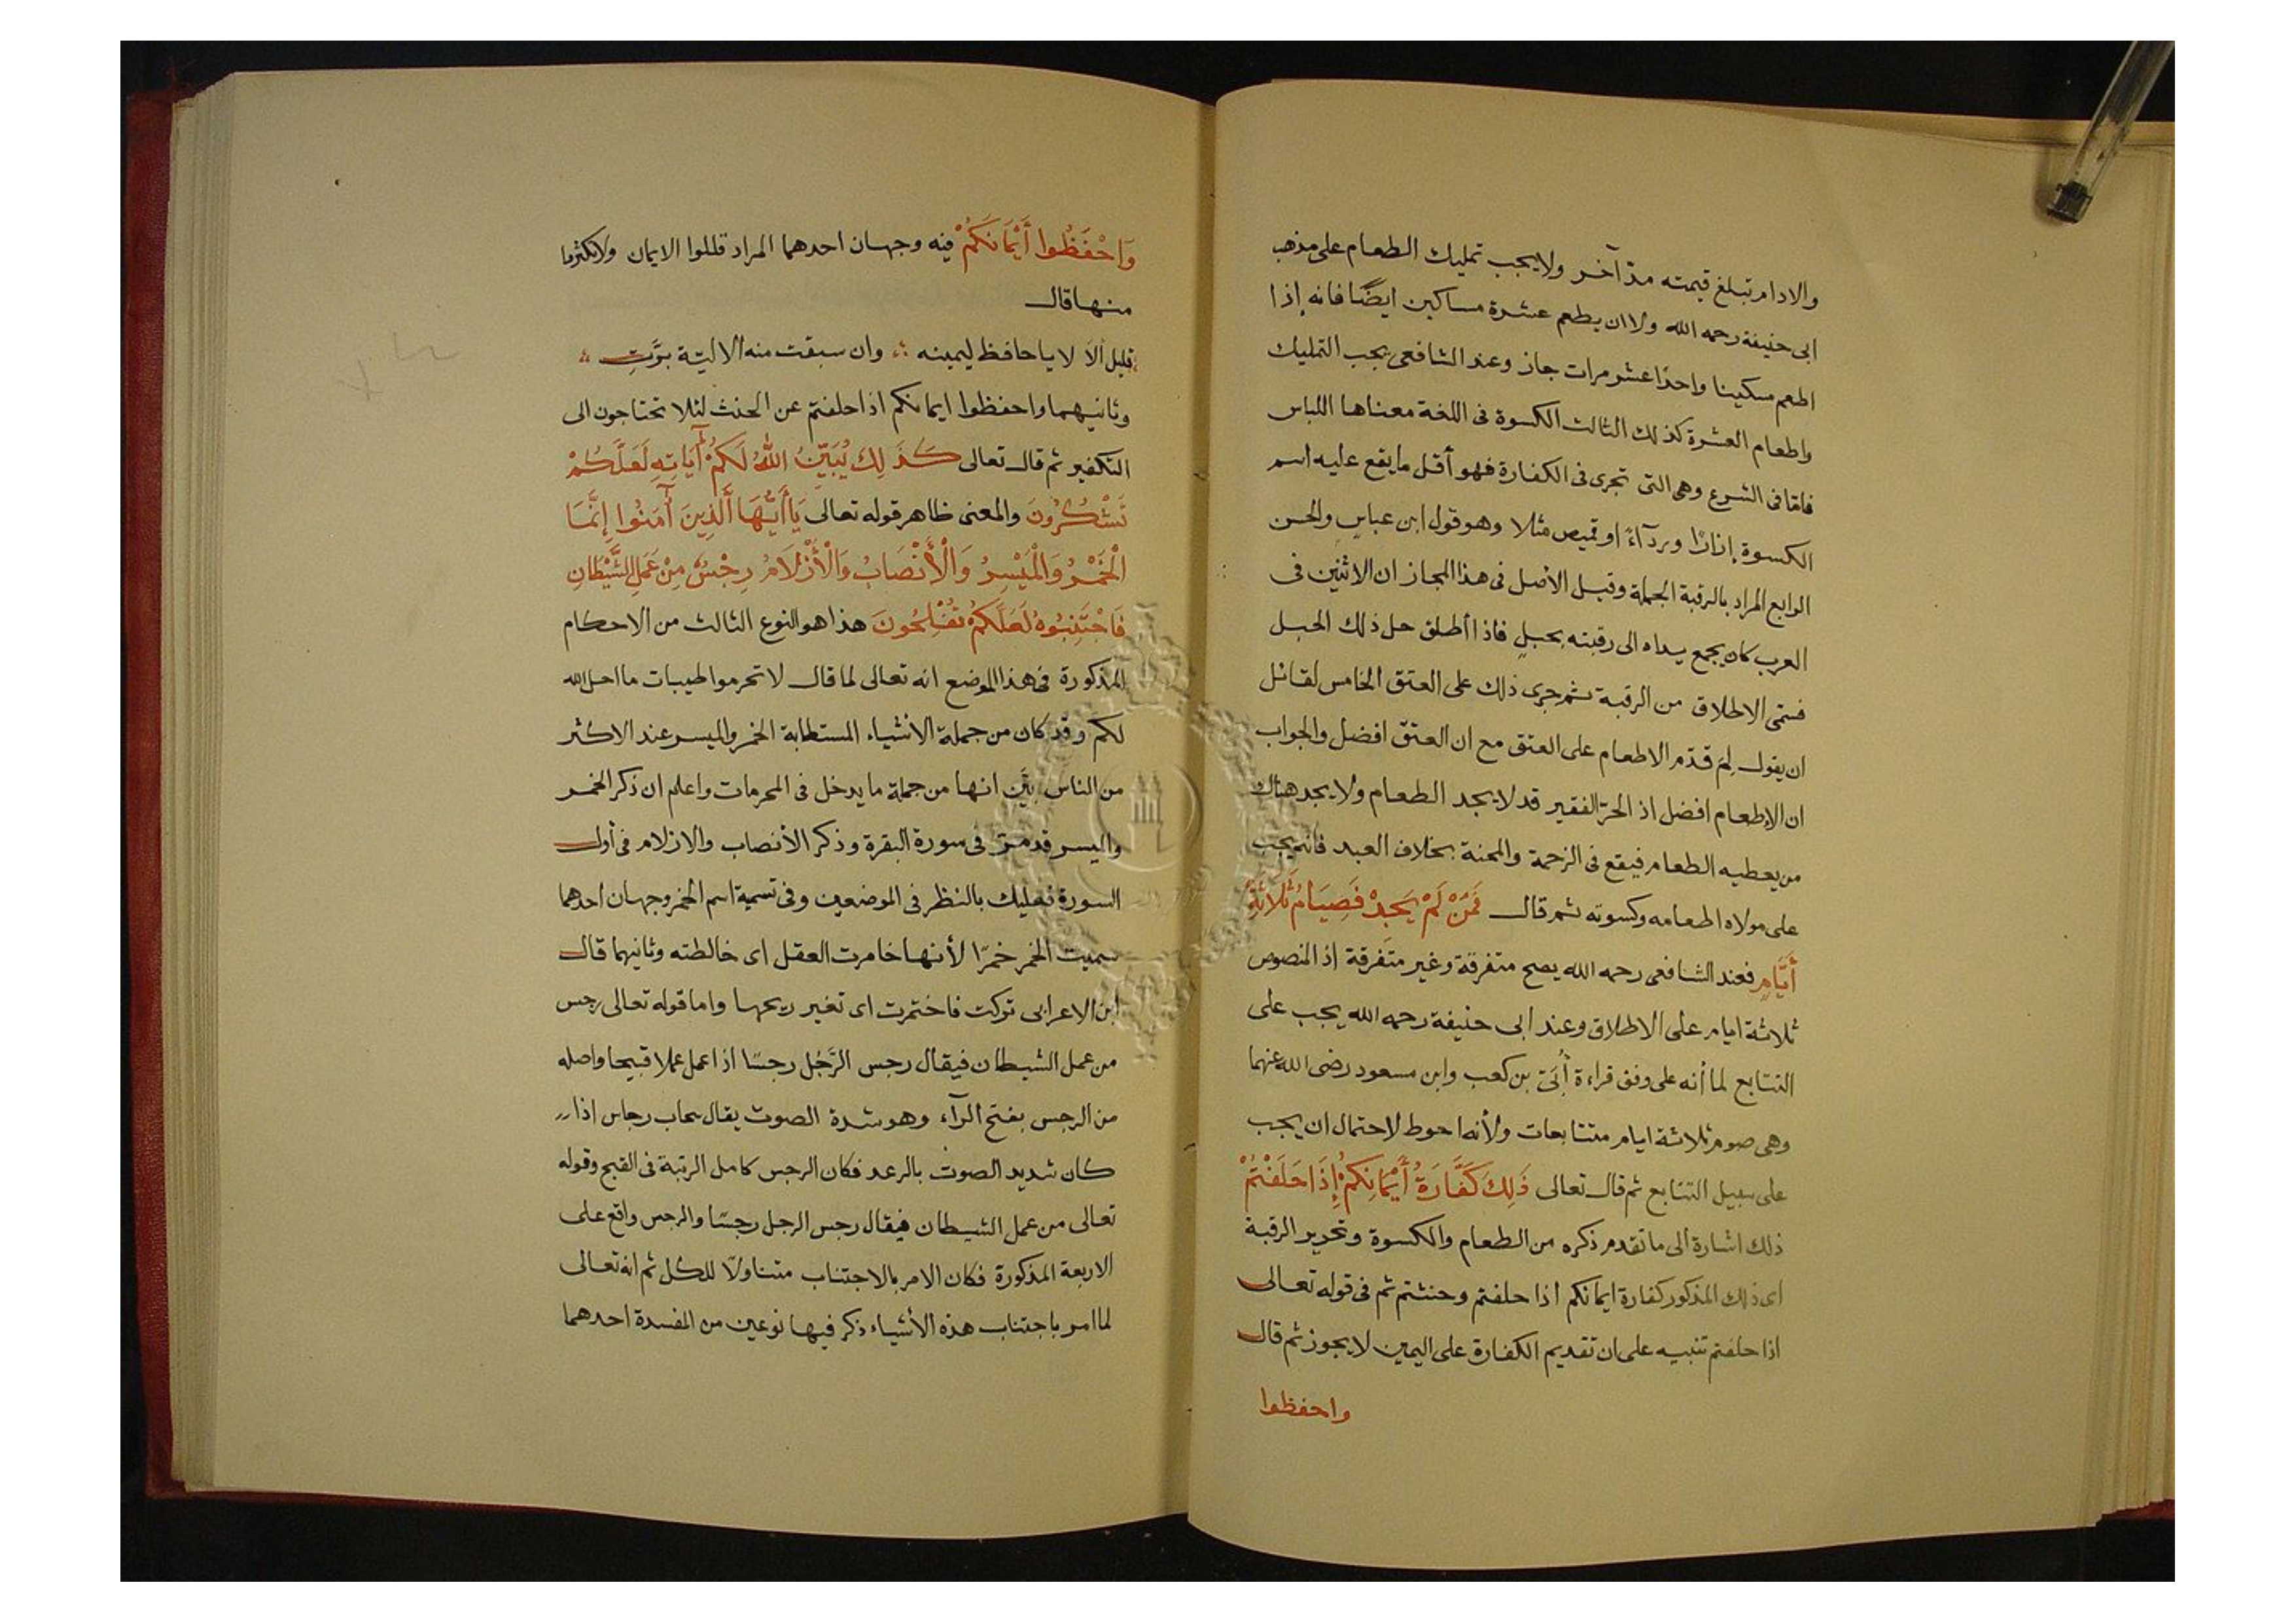 والادام تبلغ قيمته مدّ آخر ولا يجب تمليك الطعام على مذهب
ابى حنيفة رحمه الله ولا ان يطعم عشرة مساكين ايضًا فانه إذا
اطعم مسكينا واحدًا عشر مرات جاز وعند الشافعى يجب التمليك
واطعام العشرة كذلك الثالث الكسوة فى اللغة معناها اللباس
فامّا فى الشرع وهى التى تجرى فى الكفارة فهو أقل ما يقع عليه اسم
الكسوة إزارًا ورِدآءً او قميص مثلا وهو قول ابن عباس والحسن
الرابع المراد بالرقبة الجملة وقيل الأصل فى هذا المجاز ان الاثنين فى
العرب كان يجمع يداه الى رقبته بحبلٍ فاذا أطلق حل ذلك الحبل
فسمّى الاطلاق من الرقبة ثم جرى ذلك على العتق الخامس لقائل
ان يقول لِمَ قدّم الاطعام على العتق مع ان العتق افضل والجواب
ان الإطعام افضل اذ الحرّ الفقير قد لا يجد الطعام ولا يجد هناك
من يعطيه الطعام فيقع فى الزحمة والمحنة بخلاف العبد فانه يجب
على مولاه اطعامه وكسوته ثم قال فَمَنْ لَمْ يَجِدْ فَصِيَامُ ثَلَاثَةِ
أَيَّامٍ فعند الشافعى رحمه الله يصح متفرقة وغير متفرقة إذ المنصوص
ثلاثة ايام على الاطلاق وعند ابى حنيفة رحمه الله يجب على
التتابع لما أنه على وفق قراءة أُبَىّ بن كعب وابن مسعود رضى الله عنهما
وهى صوم ثلاثة ايام متتابعات ولأنه احوط لاحتمال ان يجب
على سبيل التتابع ثم قال تعالى ذَلِكَ كَفَّارَةُ أَيْمَانِكُمْ إِذَا حَلَفْتُمْ
ذلك اشارة الى ما تقدم ذكره من الطعام والكسوة وتحرير الرقبة
اى ذلك المذكور كفارة ايمانكم اذا حلفتم وحنثتم ثم فى قوله تعالى
اذا حلفتم تنبيه على ان تقديم الكفارة على اليمين لا يجوز ثم قال
واحفظوا
وَاحْفَظُوا أَيْمَانَكُمْ فيه وجهان احدهما المراد قللوا الايمان ولا تكثروا
منها قال
قليل ألاَ لا يا حافظ ليمينه وان سبقت منه الاليّة برَّتِ
وثانيهما واحفظوا ايمانكم اذا حلفتم عن الحنث لئلا تحتاجون الى
التكفير ثم قال تعالى كَذَلِكَ يُبَيِّنُ اللهُ لَكُمْ آيَاتِهِ لَعَلَّكُمْ
تَشْكُرُونَ والمعنى ظاهر قوله تعالى يَا أَيُّهَا الَّذِينَ آمَنُوا إِنَّمَا
الْخَمْرُ وَالْمَيْسِرُ وَالْأَنْصَابُ وَالْأَزْلَامُ رِجْسٌ مِنْ عَمَلِ الشَّيْطَانِ
فَاجْتَنِبُوهُ لَعَلَّكُمْ تُفْلِحُونَ هذا هو النوع الثالث من الاحكام
المذكورة فى هذا الموضع انه تعالى لما قال لا تحرموا طيبات ما احل الله
لكم وقد كان من جملة الأشياء المستطابة الخمر والميسر عند الاكثر
من الناس بيَّن انها من جملة ما يدخل فى المحرمات واعلم ان ذكر الخمر
والميسر قد مرّ فى سورة البقرة وذكر الأنصاب والازلام فى أول
السورة فعليك بالنظر فى الموضعين وفى تسمية اسم الخمر وجهان احدهما
سميت الخمر خمرًا لأنها خامرت العقل اى خالطته وثانيهما قال
ابن الاعرابى تركت فاختمرت اى تغير ريحها واما قوله تعالى رجس
من عمل الشيطان فيقال رجس الرَّجُل رجسًا اذا عمل عملا قبيحا واصله
من الرجس بفتح الرآء وهو شدة الصوت يقال سحاب رجاس اذا
كان شديد الصوت بالرعد فكان الرجس كامل الرتبة فى القبح وقوله
تعالى من عمل الشيطان فيقال رجس الرجل رجسًا والرجس واقع على
الاربعة المذكورة فكان الامر بالاجتناب متناولًا للكل ثم انه تعالى
لما امر باجتناب هذه الأشياء ذكر فيها نوعين من المفسدة احدهما